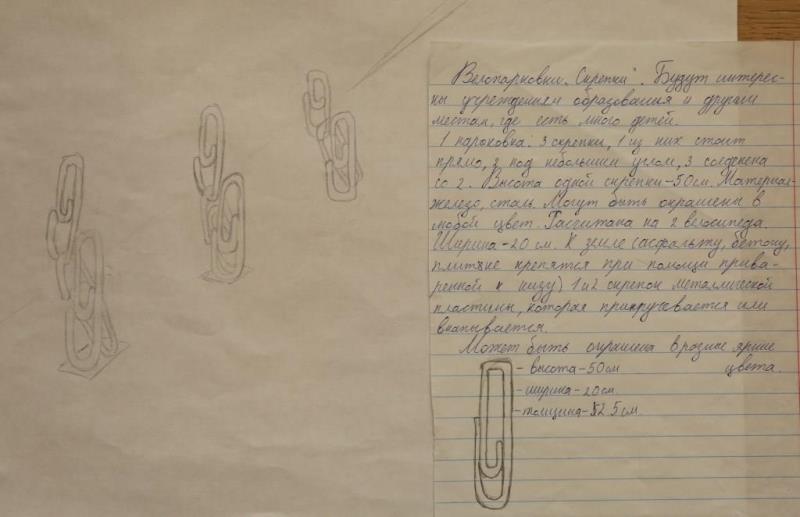 Велопарковки „Скрепки". Будут интерес-
ны учреждениям образования и другим
местам, где есть много детей.
1 парковка: 3 скрепки, 1 из них стоит
прямо, 2 под небольшим углом, 3 соединена
со 2. Высота одной скрепки-50см. Материал-
железо, сталь. Могут быть окрашены в
любой цвет. Расчитана на 2 велосипеда.
Ширина-20 см. К земле (асфальту, бетону,
плитке крепятся при помощи прива-
ренной к низу) 1 и 2 скрепок металлической
пластины, которая прикручевается или
вкапывается.
Может быть окрашена в разные яркие
цвета.
- высота-50см
- ширина-20см.
- толщина-2,5 см.